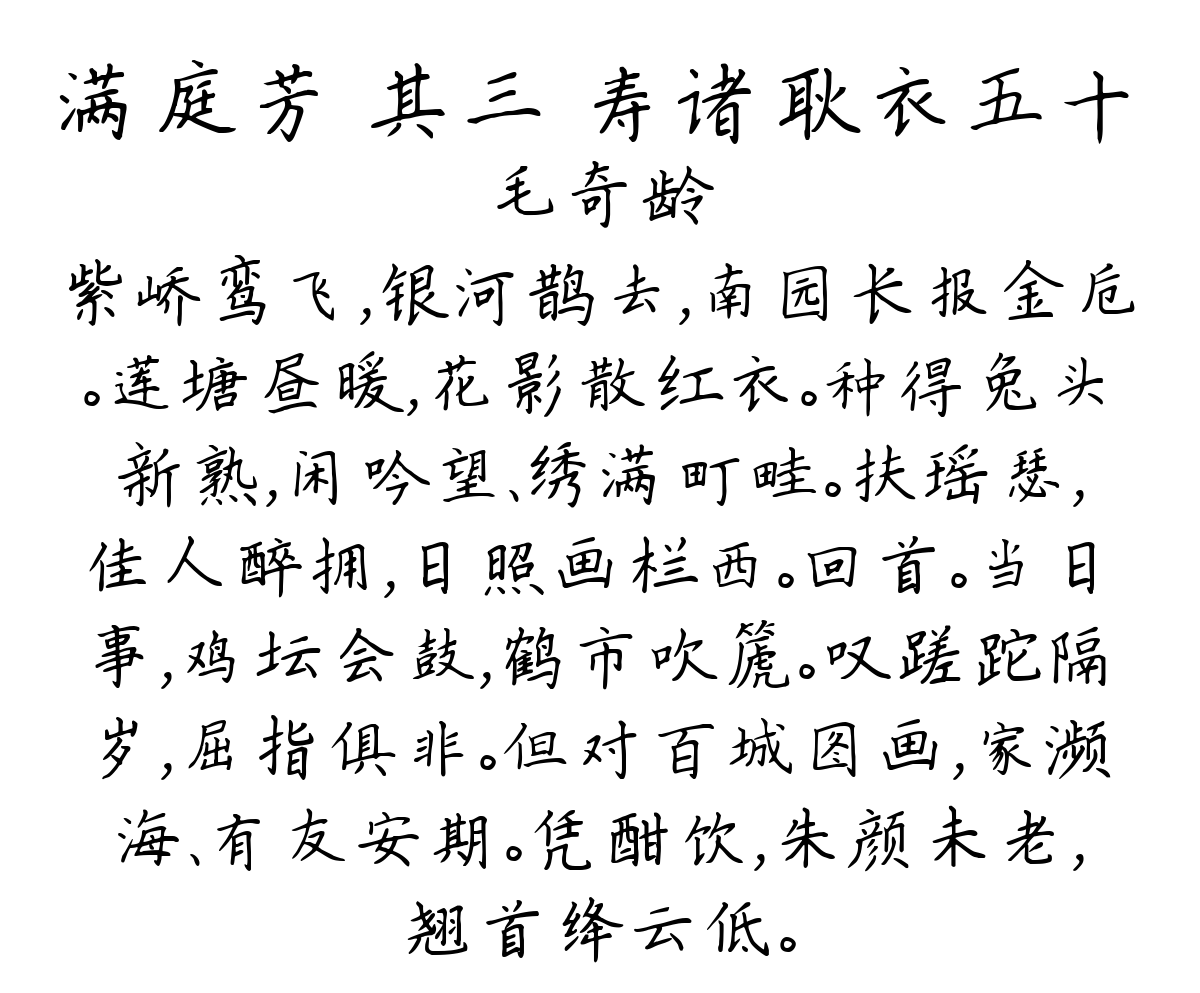 满庭芳 其三 寿诸耿衣五十
毛奇龄
紫峤鸾飞,银河鹊去,南园长报金卮
。莲塘昼暖,花影散红衣。种得兔头
新熟,闲吟望、绣满町畦。扶瑶瑟,
佳人醉拥,日照画栏西。回首。当日
事,鸡坛会鼓,鹤市吹篪。叹蹉跎隔
岁,屈指俱非。但对百城图画,家濒
海、有友安期。凭酣饮,朱颜未老,
翘首绛云低。